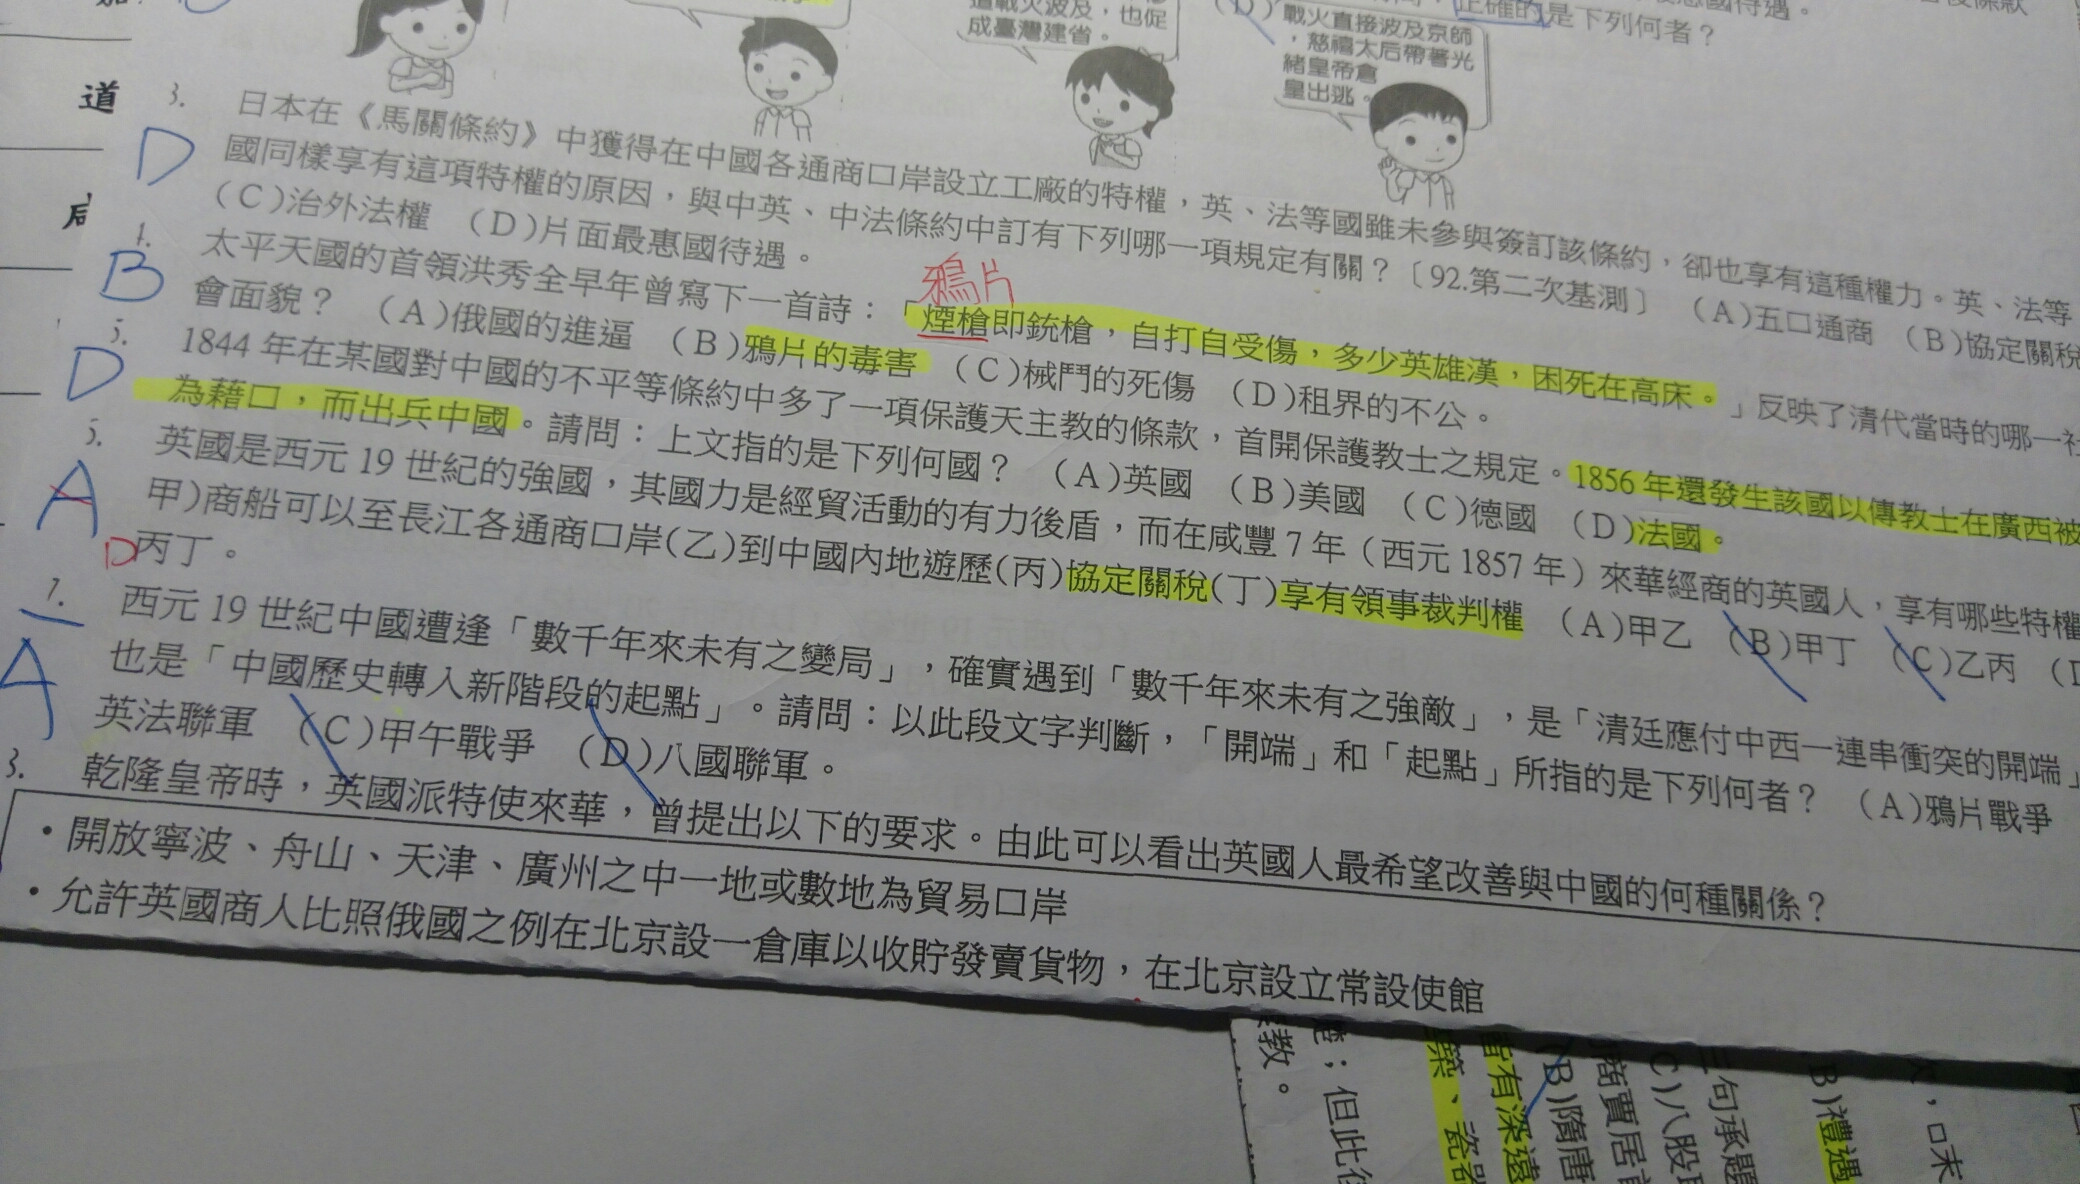 遭戰火波及，也促
成臺灣建省。
(D)
戰火直接波及京師
，慈禧太后帶著光
緒皇帝倉
皇出逃。
正確的是下列何者？
道
3. 日本在《馬關條約》中獲得在中國各通商口岸設立工廠的特權，英、法等國雖未參與簽訂該條約，卻也享有這種權力。英、法等
D 國同樣享有這項特權的原因，與中英、中法條約中訂有下列哪一項規定有關？〔92.第二次基測〕 (A)五口通商 (B)協定關稅
(C)治外法權 (D)片面最惠國待遇。
鴉片
太平天國的首領洪秀全早年曾寫下一首詩：「煙槍即銃槍，自打自受傷，多少英雄漢，困死在高床。」反映了清代當時的哪一社
B 會面貌？ (A)俄國的進逼 (B)鴉片的毒害 (C)械鬥的死傷 (D)租界的不公。
5. 1844 年在某國對中國的不平等條約中多了一項保護天主教的條款，首開保護教士之規定。1856 年還發生該國以傳教士在廣西被
D 為藉口，而出兵中國。請問：上文指的是下列何國？ (A)英國 (B)美國 (C)德國 (D)法國。
英國是西元 19 世紀的強國，其國力是經貿活動的有力後盾，而在咸豐 7 年（西元 1857 年）來華經商的英國人，享有哪些特權
A 甲)商船可以至長江各通商口岸(乙)到中國內地遊歷(丙)協定關稅(丁)享有領事裁判權 (A)甲乙 (B)甲丁 (C)乙丙
D 丙丁。
7. 西元 19 世紀中國遭逢「數千年來未有之變局」，確實遇到「數千年來未有之強敵」，是「清廷應付中西一連串衝突的開端」
A 也是「中國歷史轉入新階段的起點」。請問：以此段文字判斷，「開端」和「起點」所指的是下列何者？ (A)鴉片戰爭
英法聯軍 (C)甲午戰爭 (D)八國聯軍。
乾隆皇帝時，英國派特使來華，曾提出以下的要求。由此可以看出英國人最希望改善與中國的何種關係？
・開放寧波、舟山、天津、廣州之中一地或數地為貿易口岸
・允許英國商人比照俄國之例在北京設一倉庫以收貯發賣貨物，在北京設立常設使館
B)禮遇
句承題
C)八股
商賈居
(B)隋唐
皆有深遠
築、瓷器
；但此後
教。